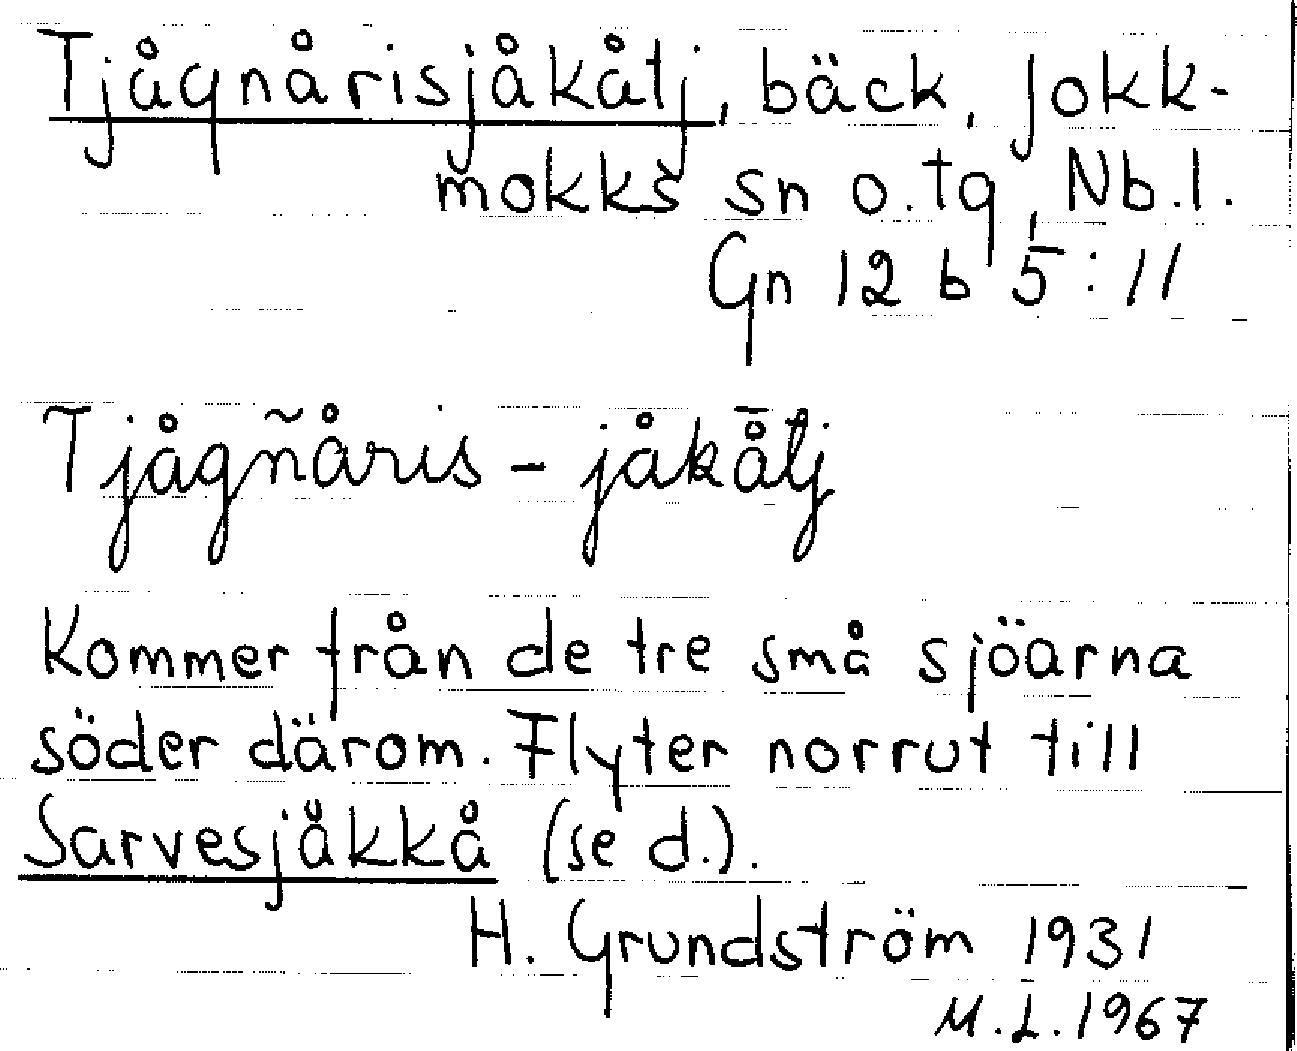 Tjågnårisjåkåtj, bäck, Jokk-
mokks sn o. tg, Nb.l.
Gn 12 b 5:11
Tjågñåris - jåkå̄tj
Kommer från de tre små sjöarna
söder därom. Flyter norrut till
Sarvesjåkkå (se d.).
H. Grundström 1931
M.L. 1967